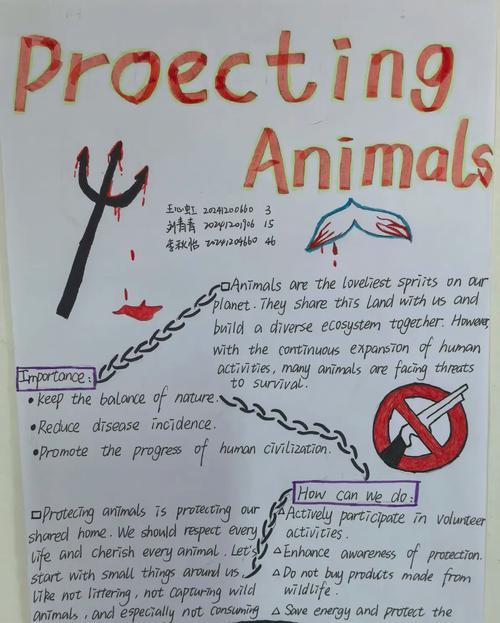 Proecting
Animals
王心虹 20241200660 3
刘青青 20241201906 15
李秋怡 20241204660 46
□Animals are the loveliest spriits on our
planet. They share this land with us and
build a diverse ecosystem together. However,
with the continuous expansion of human
activities, many animals are facing threats
to survival.
Importance:
•keep the balance of nature.
•Reduce disease incidence.
•Promote the progress of human civilization.
How can we do:
△Actively participate in volunteer
activities.
△Enhance awareness of protection.
△Do not buy products made from
wildlife.
△Save energy and protect the
□Protecing animals is protecting our
shared home. We should respect every
life and cherish every animal. Let's
start with small things around us,
like not littering, not capturing wild
animals, and especially not consuming